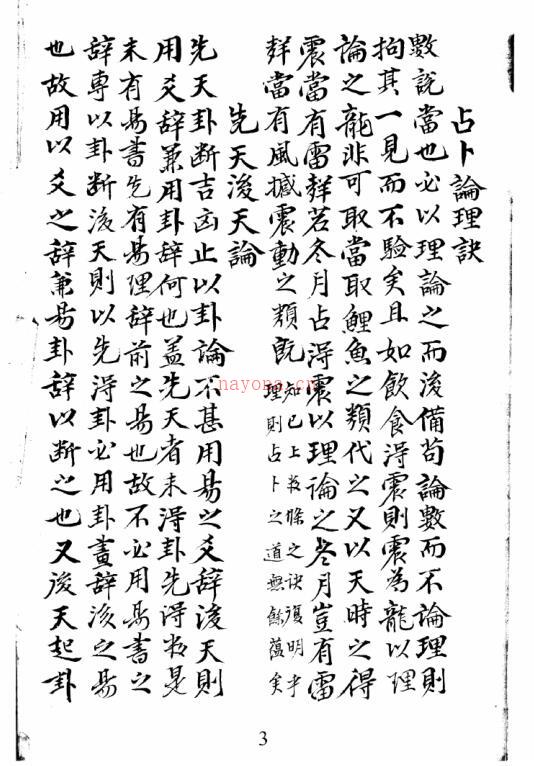 占卜論理訣
數說當也必以理論之而後備苟論數而不論理則
拘其一見而不驗矣且如飲食得震則震為龍以理
論之龍非可取當取鯉魚之類代之又以天時之得
震當有雷聲若冬月占得震以理論之冬月豈有雷
聲當有風撼震動之類既
知已上数條之訣復明乎
理則占卜之道無餘蘊矣
先天後天論
先天卦斷吉凶止以卦論不甚用易之爻辞後天則
用爻辞兼用卦辞何也盖先天者未得卦先得数是
未有易書先有易理辞前之易也故不必用易書之
辞專以卦断後天則以先得卦必用卦畫辞後之易
也故用以爻之辞兼易卦辞以断之也又後天起卦
nayona.cn
3